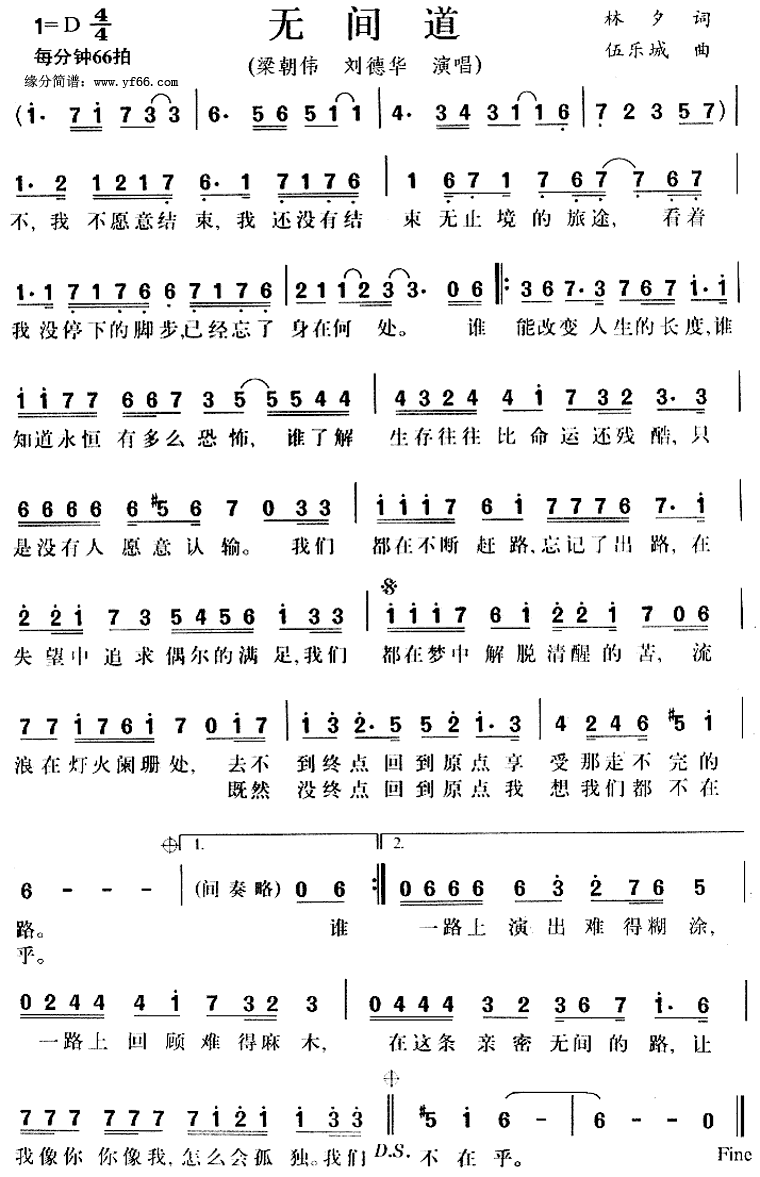 1=D 4/4
无间道
林夕 词
每分钟66拍
(梁朝伟 刘德华 演唱)
伍乐城 曲
缘分简谱：www.yf66.com
(1· 7 1 7 3 3 | 6· 5 6 5 1 1 | 4· 3 4 3 1 1 6 | 7 2 3 5 7) |
1· 2 1 2 1 7 6· 1 7 1 7 6 | 1 6 7 1 7 6 7 7 6 7 |
不,我 不愿意结 束,我 还没有结 束 无止境的旅途, 看着
1· 1 7 1 7 6 6 7 1 7 6 | 2 1 1 2 3 3· 0 6 ‖: 3 6 7· 3 7 6 7 1· 1 |
我没停下的脚步,已经忘了 身在何处。 谁 能改变人生的长度,谁
1 1 7 7 6 6 7 3 5 5 5 4 4 | 4 3 2 4 4 1 7 3 2 3· 3 |
知道永恒 有多么恐怖, 谁了解 生存往往 比命运还残酷,只
6 6 6 6 6 #5 6 7 0 3 3 | 1 1 1 7 6 1 7 7 7 6 7· 1 |
是没有人 愿意认输。 我们 都在不断 赶路,忘记了出路,在
2 2 1 7 3 5 4 5 6 1 3 3 | 1 1 1 7 6 1 2 2 1 7 0 6 |
失望中追求偶尔的满足,我们 都在梦中解脱清醒的苦, 流
7 7 1 7 6 1 7 0 1 7 | 1 3 2· 5 5 2 1· 3 | 4 2 4 6 #5 1 |
浪在灯火阑珊处, 去不 到终点回到原点享 受那走不完的
既然 没终点回到原点我 想我们都不在
1. 2.
6 - - - | (间奏略) 0 6 :‖ 0 6 6 6 6 3 2 7 6 5 |
路。 谁 一路上演出难得糊涂,
乎。
0 2 4 4 4 1 7 3 2 3 | 0 4 4 4 3 2 3 6 7 1· 6 |
一路上回顾难得麻木, 在这条亲密无间的路,让
7 7 7 7 7 7 7 1 2 1 1 3 3 ‖ #5 1 6 - | 6 - - 0 ‖
我像你 你像我,怎么会孤独。我们 D.S. 不在乎。 Fine